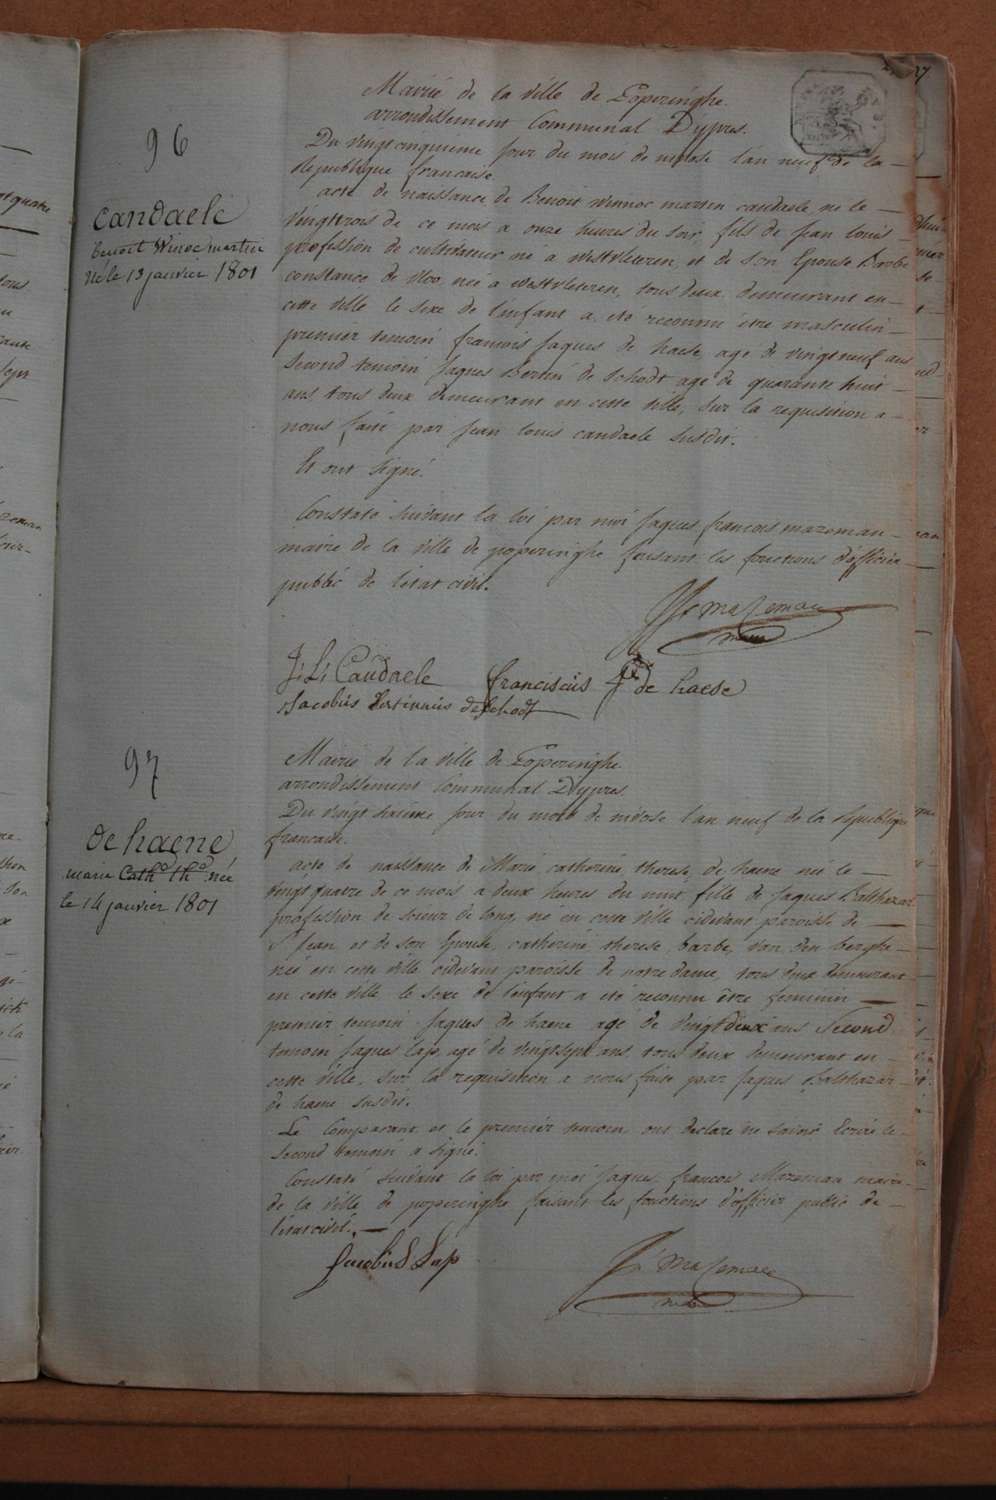 96
Candaele
benoit Winoc martin
né le 13 janvier 1801
Mairie de la ville de Poperinghe
arrondissement Communal D'ypres.
Du vingt cinquieme jour du mois de nivose l'an neuf de la
République francaise
acte de naissance de Benoit Winnoc marten candaele né le
vingttrois de ce mois a onze heures du soir, fils de jean louis
profession de cultivateur né a westvleteren et de son Epouse Barbe
constance de Vloo, née a westvleteren, tous deux demeurant en
cette ville le sexe de l'enfant a été reconnu être masculin
premier temoin francois jaques de haese, agé de vingt neuf ans
second temoin jaques Bertin de Schodt agé de quarante huit
ans tous deux demeurant en cette ville, sur la requisition a
nous faite par jean louis candaele susdit.
Et ont signé.
Constaté suivant la loi par moi jaques francois mazeman
maire de la ville de poperinghe faisant les fonctions d'officier
public de l'état civil.
JF Mazeman
maire
J: L: Candaele franciscus J de haese
Jacobus Bertinus de Schodt
97
de haene
marie Cath. Th. née
le 14 janvier 1801
Mairie de la ville de Poperinghe
arrondissement Communal D'ypres
Du vingt sixieme jour du mois de nivose l'an neuf de la Republique
francaise.
acte de naissance de Marie catherine therese, de haene née le
vingt quatre de ce mois a deux heures du nuit fille de jaques Balthazar
profession de scieur de long, né en cette ville cidevant paroisse de
S.t Jean et de son Epouse, catherine therese, barbe, van den berghe
née en cette ville cidevant paroisse de notre dame, tous deux demeurant
en cette ville le sexe de l'enfant a été reconnu être feminin
premier temoin jaques de haene agé de vingt deux ans Second
temoin jaques Lap, agé de vingt sept ans, tous deux demeurant en
cette ville, sur la requisition a nous faite par jaques Balthazar
de haene susdit.
Le Comparant et le premier temoin ont declaré ne savoir Ecrire le
second temoin a signé.
Constaté suivant la loi par moi jaques francois Mazeman maire
de la ville de poperinghe faisant les fonctions d'officier public de
l'état civil.
Jacobus Lap
JF Mazeman
maire